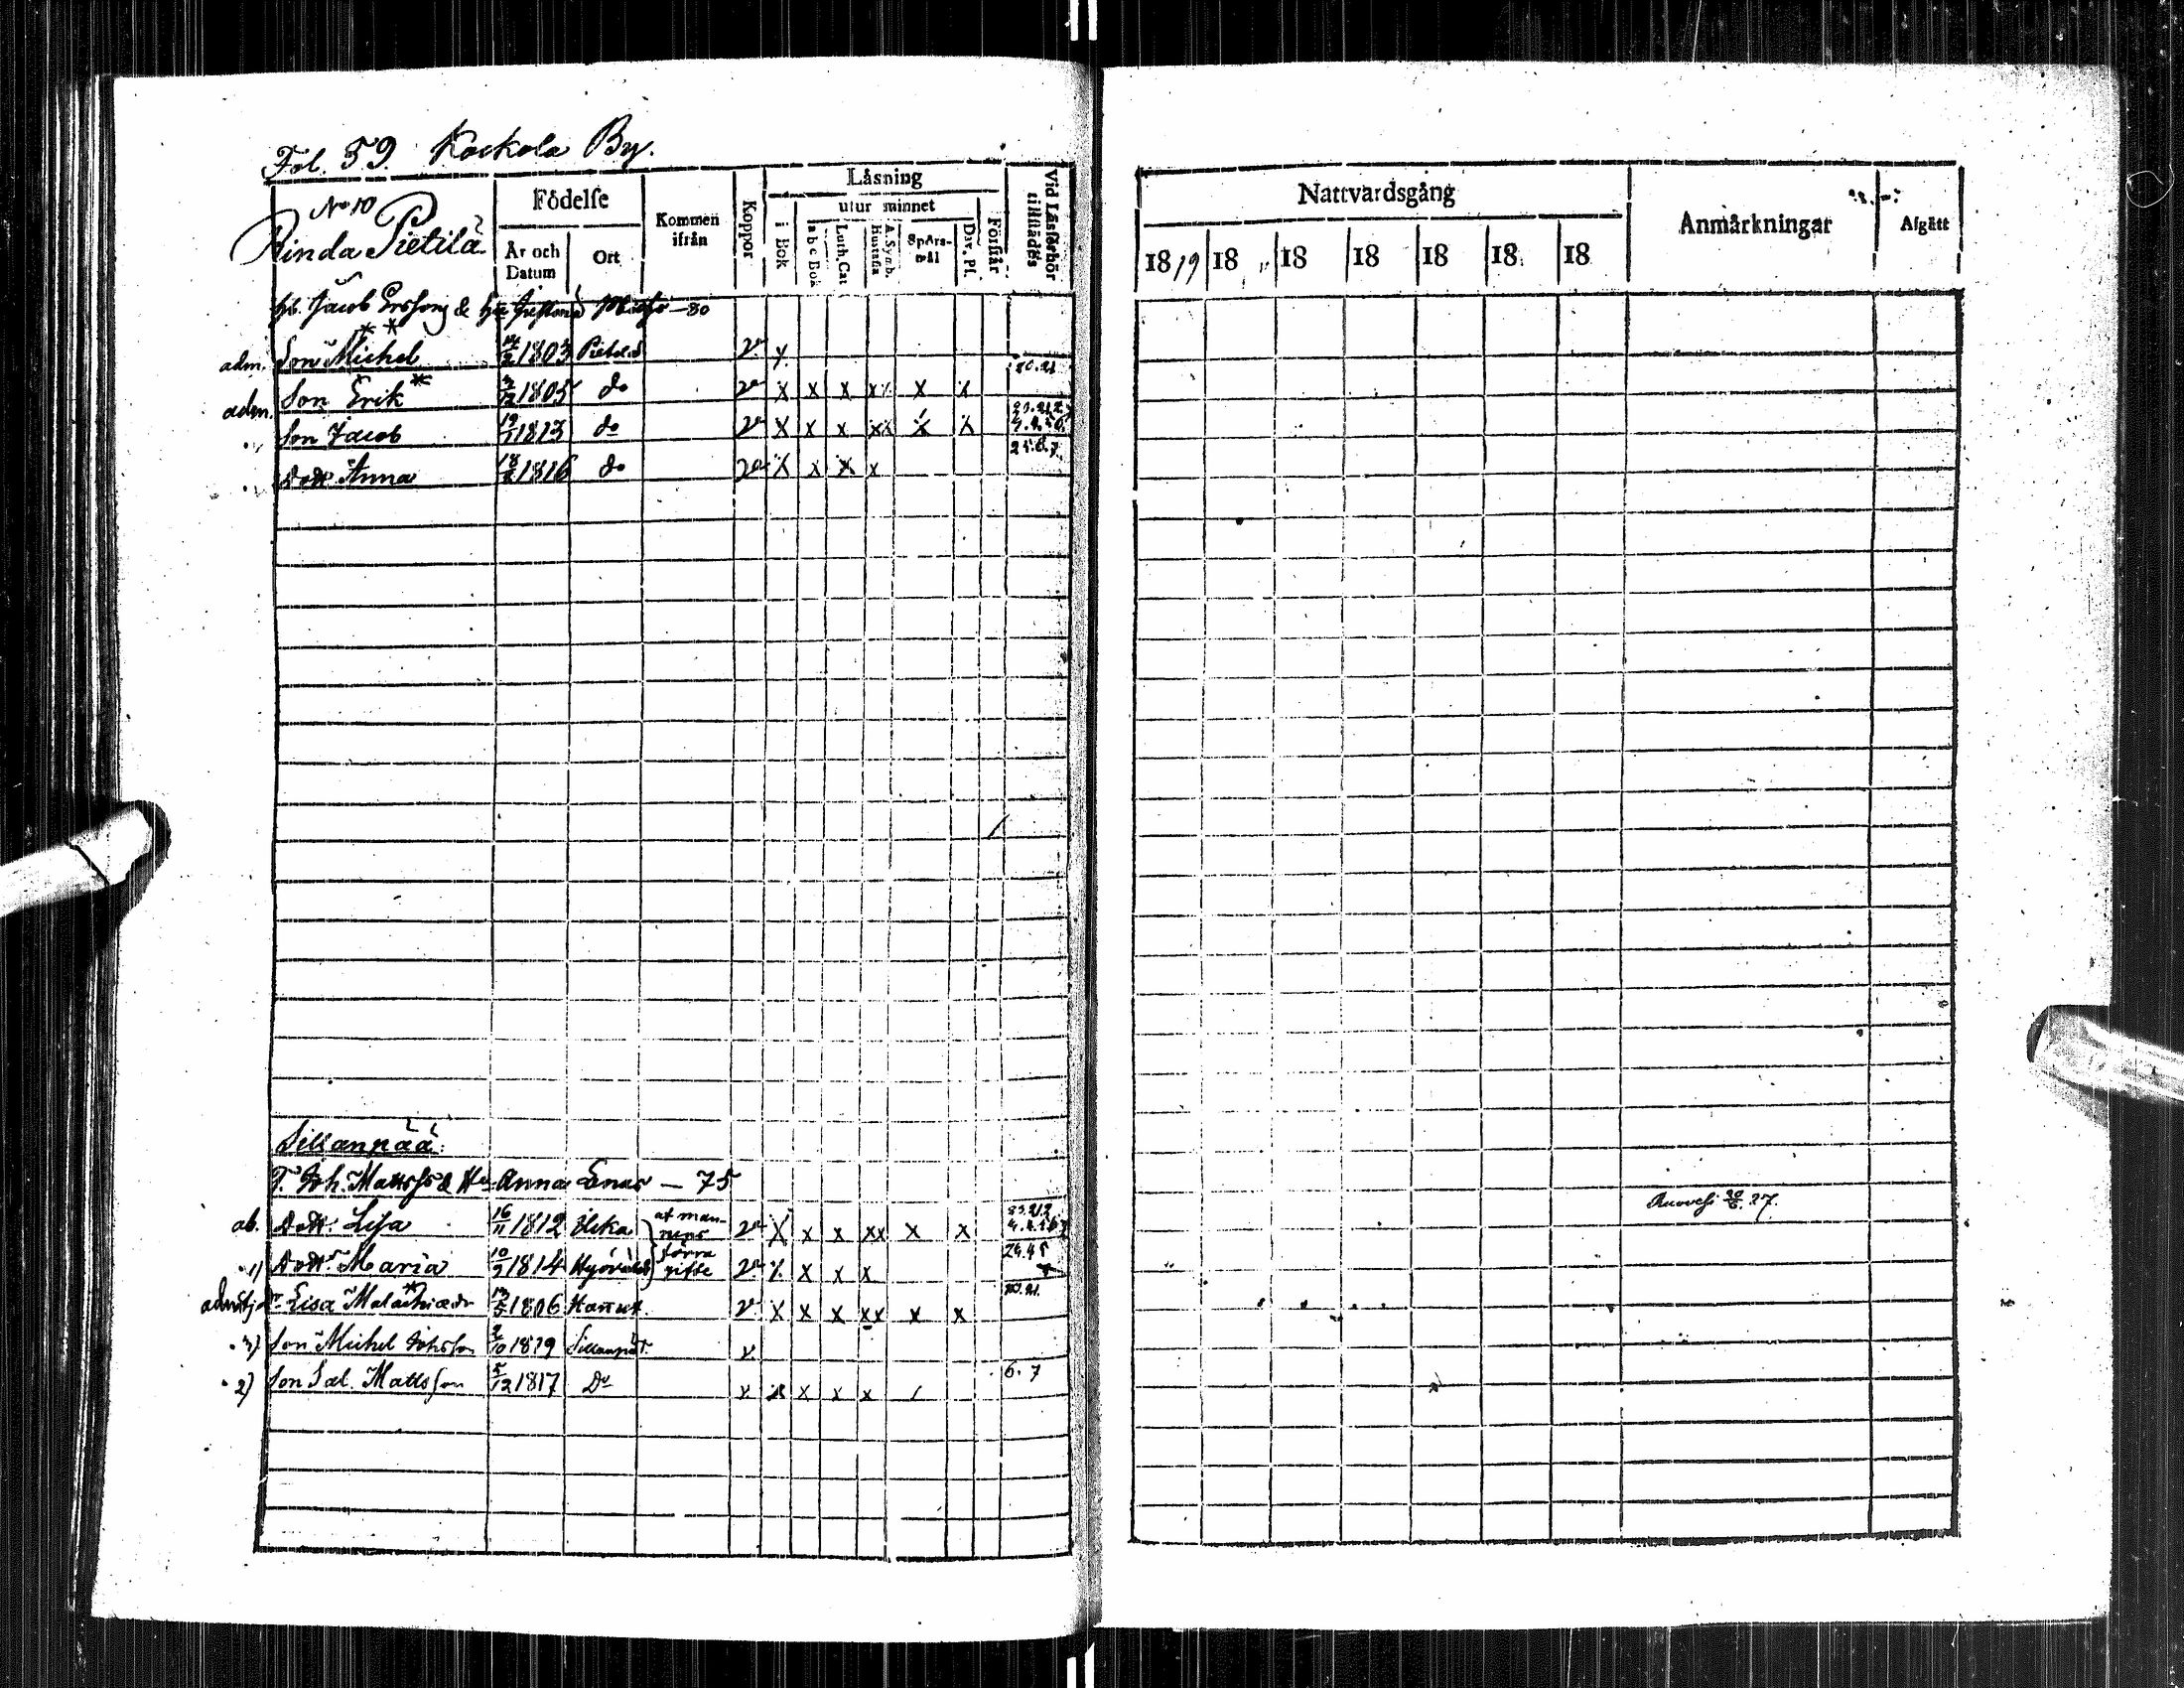 Fol. 59. Kockola By.
No 10
Rinda Pietilä
Födelse
År och Datum
Ort
Kommen ifrån
Koppor
Läsning
i Bok
utur minnet
a b c Bok
Luth. Cat
Hustafla
A. Symb.
Spörs-mål
Dav. Ps.
Förstår
Vid Läsförhör tillstädes
Jacob Ersson & — 80
adm. Son Michel 1803 Pietilä v x 20.21
adm. Son Erik 3/12 1805 do v x x x xx x x
Son Jacob 19/1 1813 do v x x x xx x x
Dott. Anna 1816 do v x x x x
Sillanpää.
T. Joh. Mattss & Hu Anna Enas — 75
ab. Dottr. Lisa 16/11 1812 af man- v x x x xx x x
nens
1) Dottr. Maria 10/9 1814 förra v x x x x 24.45
gifte
Lisa Malachiædr 1806 v x x x xx x x 20.21.
3) Son Michel Johsson 2/10 1819 Sillanpää v
2) Son Sal. Mattsson 5/12 1817 Do v x x x x 6.7
Nattvardsgång
1819 18 18 18 18 18 18
Anmärkningar
Afgått
Ruovesi 27.